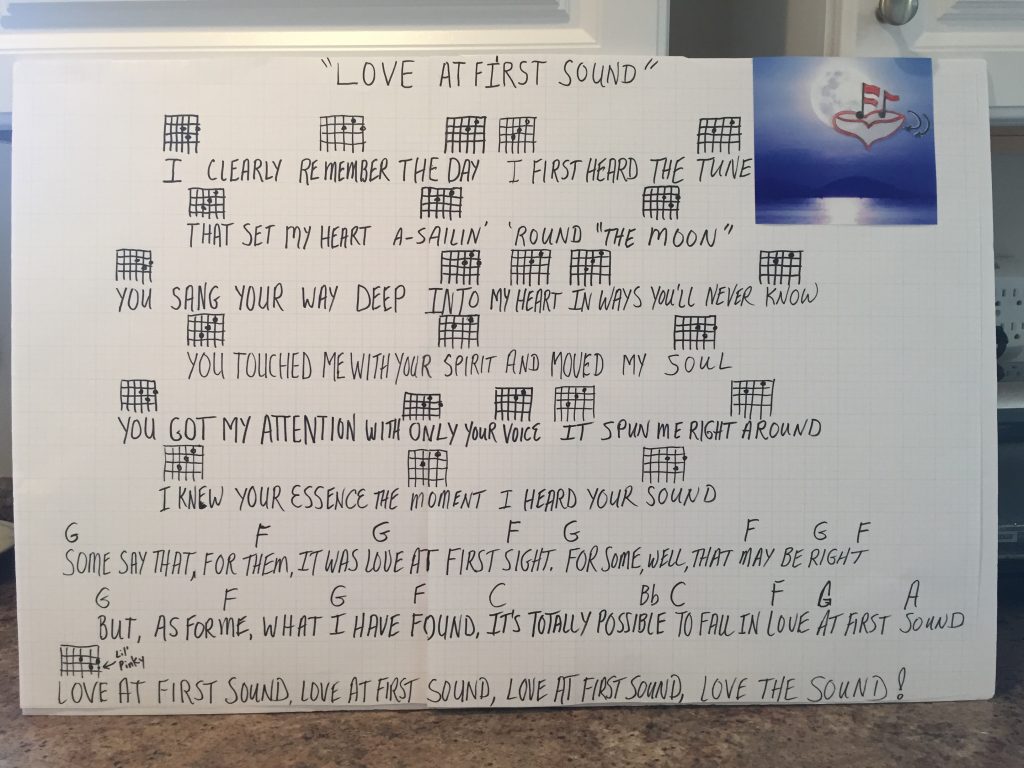 "LOVE AT FIRST SOUND"
I CLEARLY REMEMBER THE DAY I FIRST HEARD THE TUNE
THAT SET MY HEART A-SAILIN' 'ROUND "THE MOON"
YOU SANG YOUR WAY DEEP INTO MY HEART IN WAYS YOU'LL NEVER KNOW
YOU TOUCHED ME WITH YOUR SPIRIT AND MOVED MY SOUL
YOU GOT MY ATTENTION WITH ONLY YOUR VOICE IT SPUN ME RIGHT AROUND
I KNEW YOUR ESSENCE THE MOMENT I HEARD YOUR SOUND
G F G F G F G F
SOME SAY THAT, FOR THEM, IT WAS LOVE AT FIRST SIGHT. FOR SOME, WELL, THAT MAY BE RIGHT
G F G F C Bb C F G A
BUT, AS FOR ME, WHAT I HAVE FOUND, IT'S TOTALLY POSSIBLE TO FALL IN LOVE AT FIRST SOUND
LIL'
PINKY
LOVE AT FIRST SOUND, LOVE AT FIRST SOUND, LOVE AT FIRST SOUND, LOVE THE SOUND!